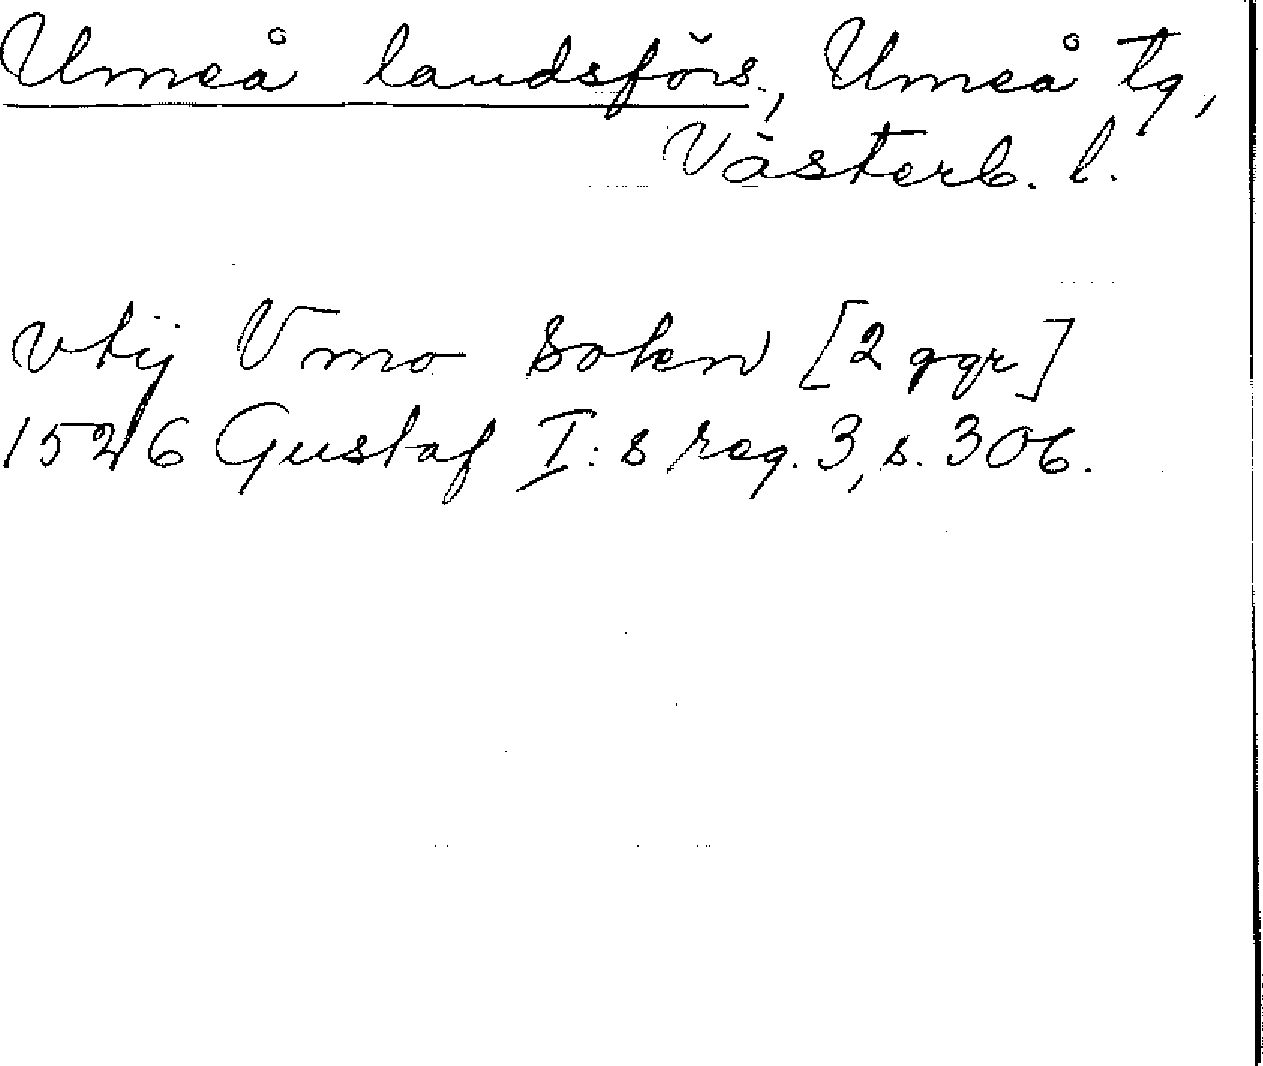 Umeå landsförs., Umeå tg,
Västerb. l.
vtij Vmo Sokn [2 ggr]
1526 Gustaf I:s reg. 3, s. 306.